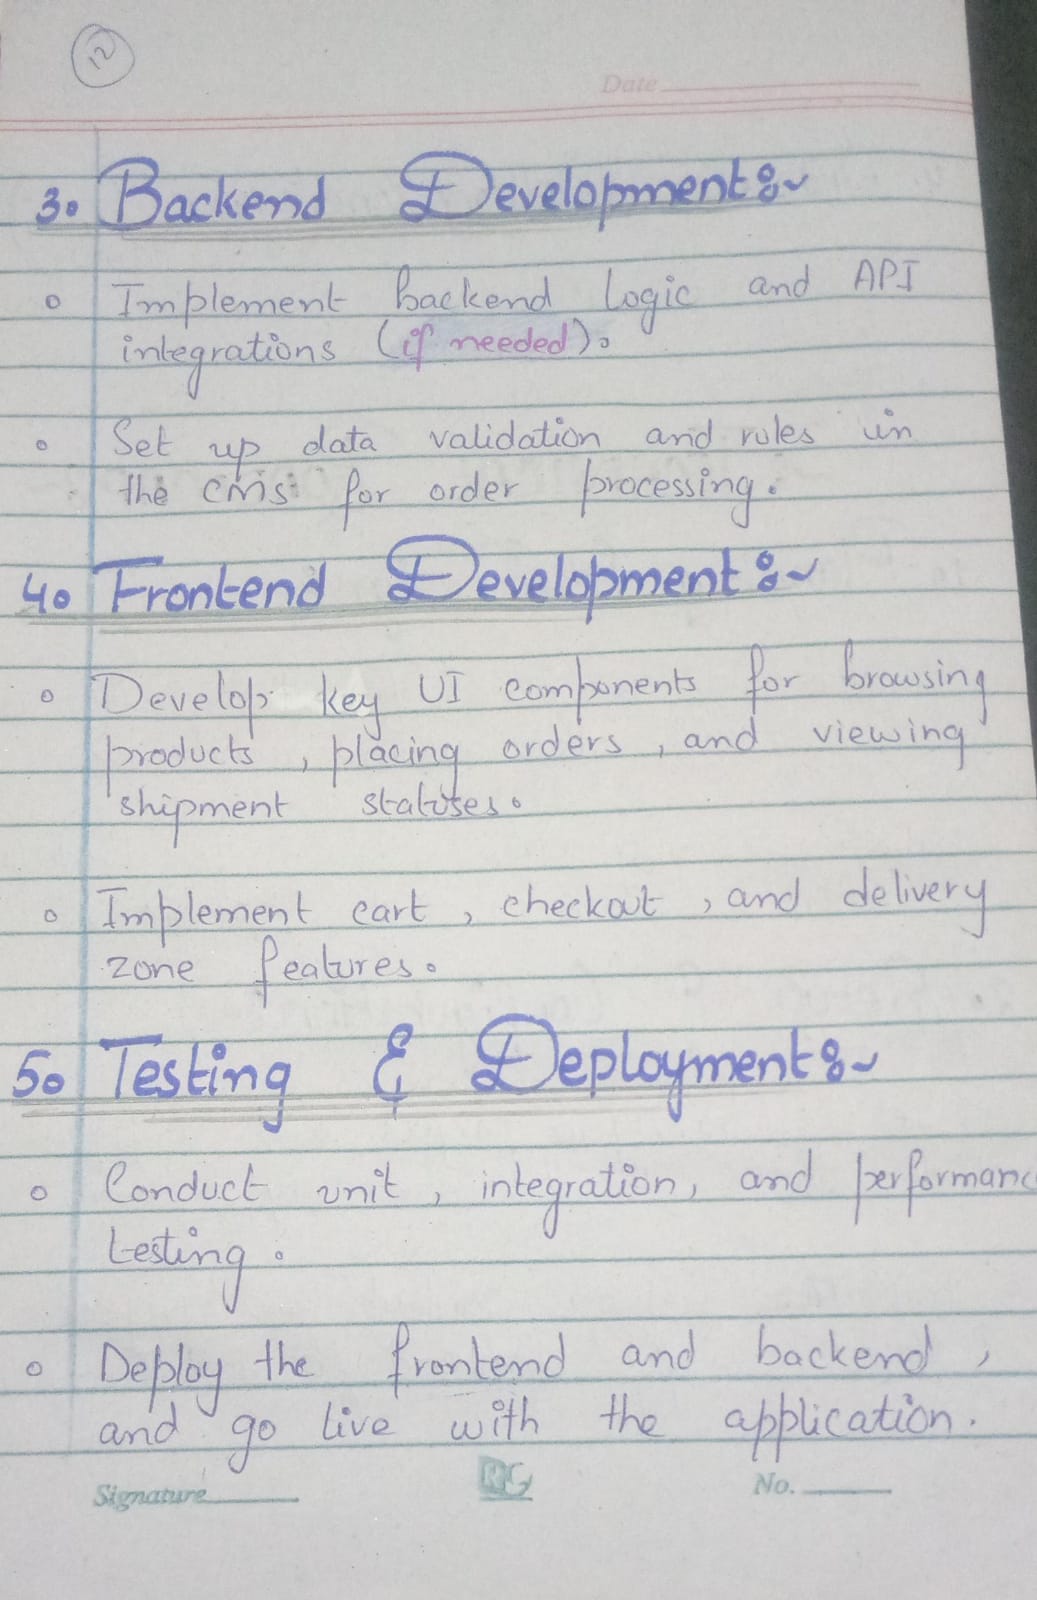 12
Date
3. Backend Development:~
o Implement backend logic and API
integrations (if needed).
o Set up data validation and rules in
the CMS for order processing.
4. Frontend Development:~
o Develop key UI components for browsing
products, placing orders, and viewing
shipment statuses.
o Implement cart, checkout, and delivery
zone features.
5. Testing & Deployment:~
o Conduct unit, integration, and performanc
testing.
o Deploy the frontend and backend,
and go live with the application.
Signature RG No.